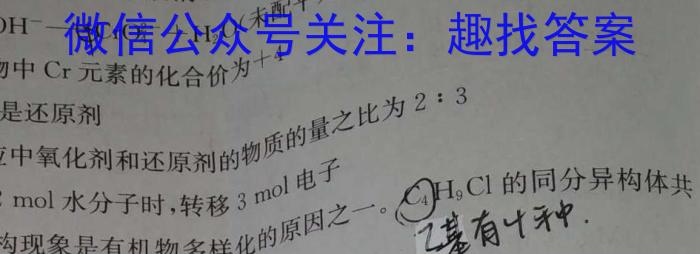 OH⁻ H₂O(未配平
微信公众号关注：趣找答案
物中 Cr 元素的化合价为+4
是还原剂
应中氧化剂和还原剂的物质的量之比为 2∶3
2 mol 水分子时,转移 3 mol 电子
构现象是有机物多样化的原因之一。C₄H₉Cl 的同分异构体共
基有4种.